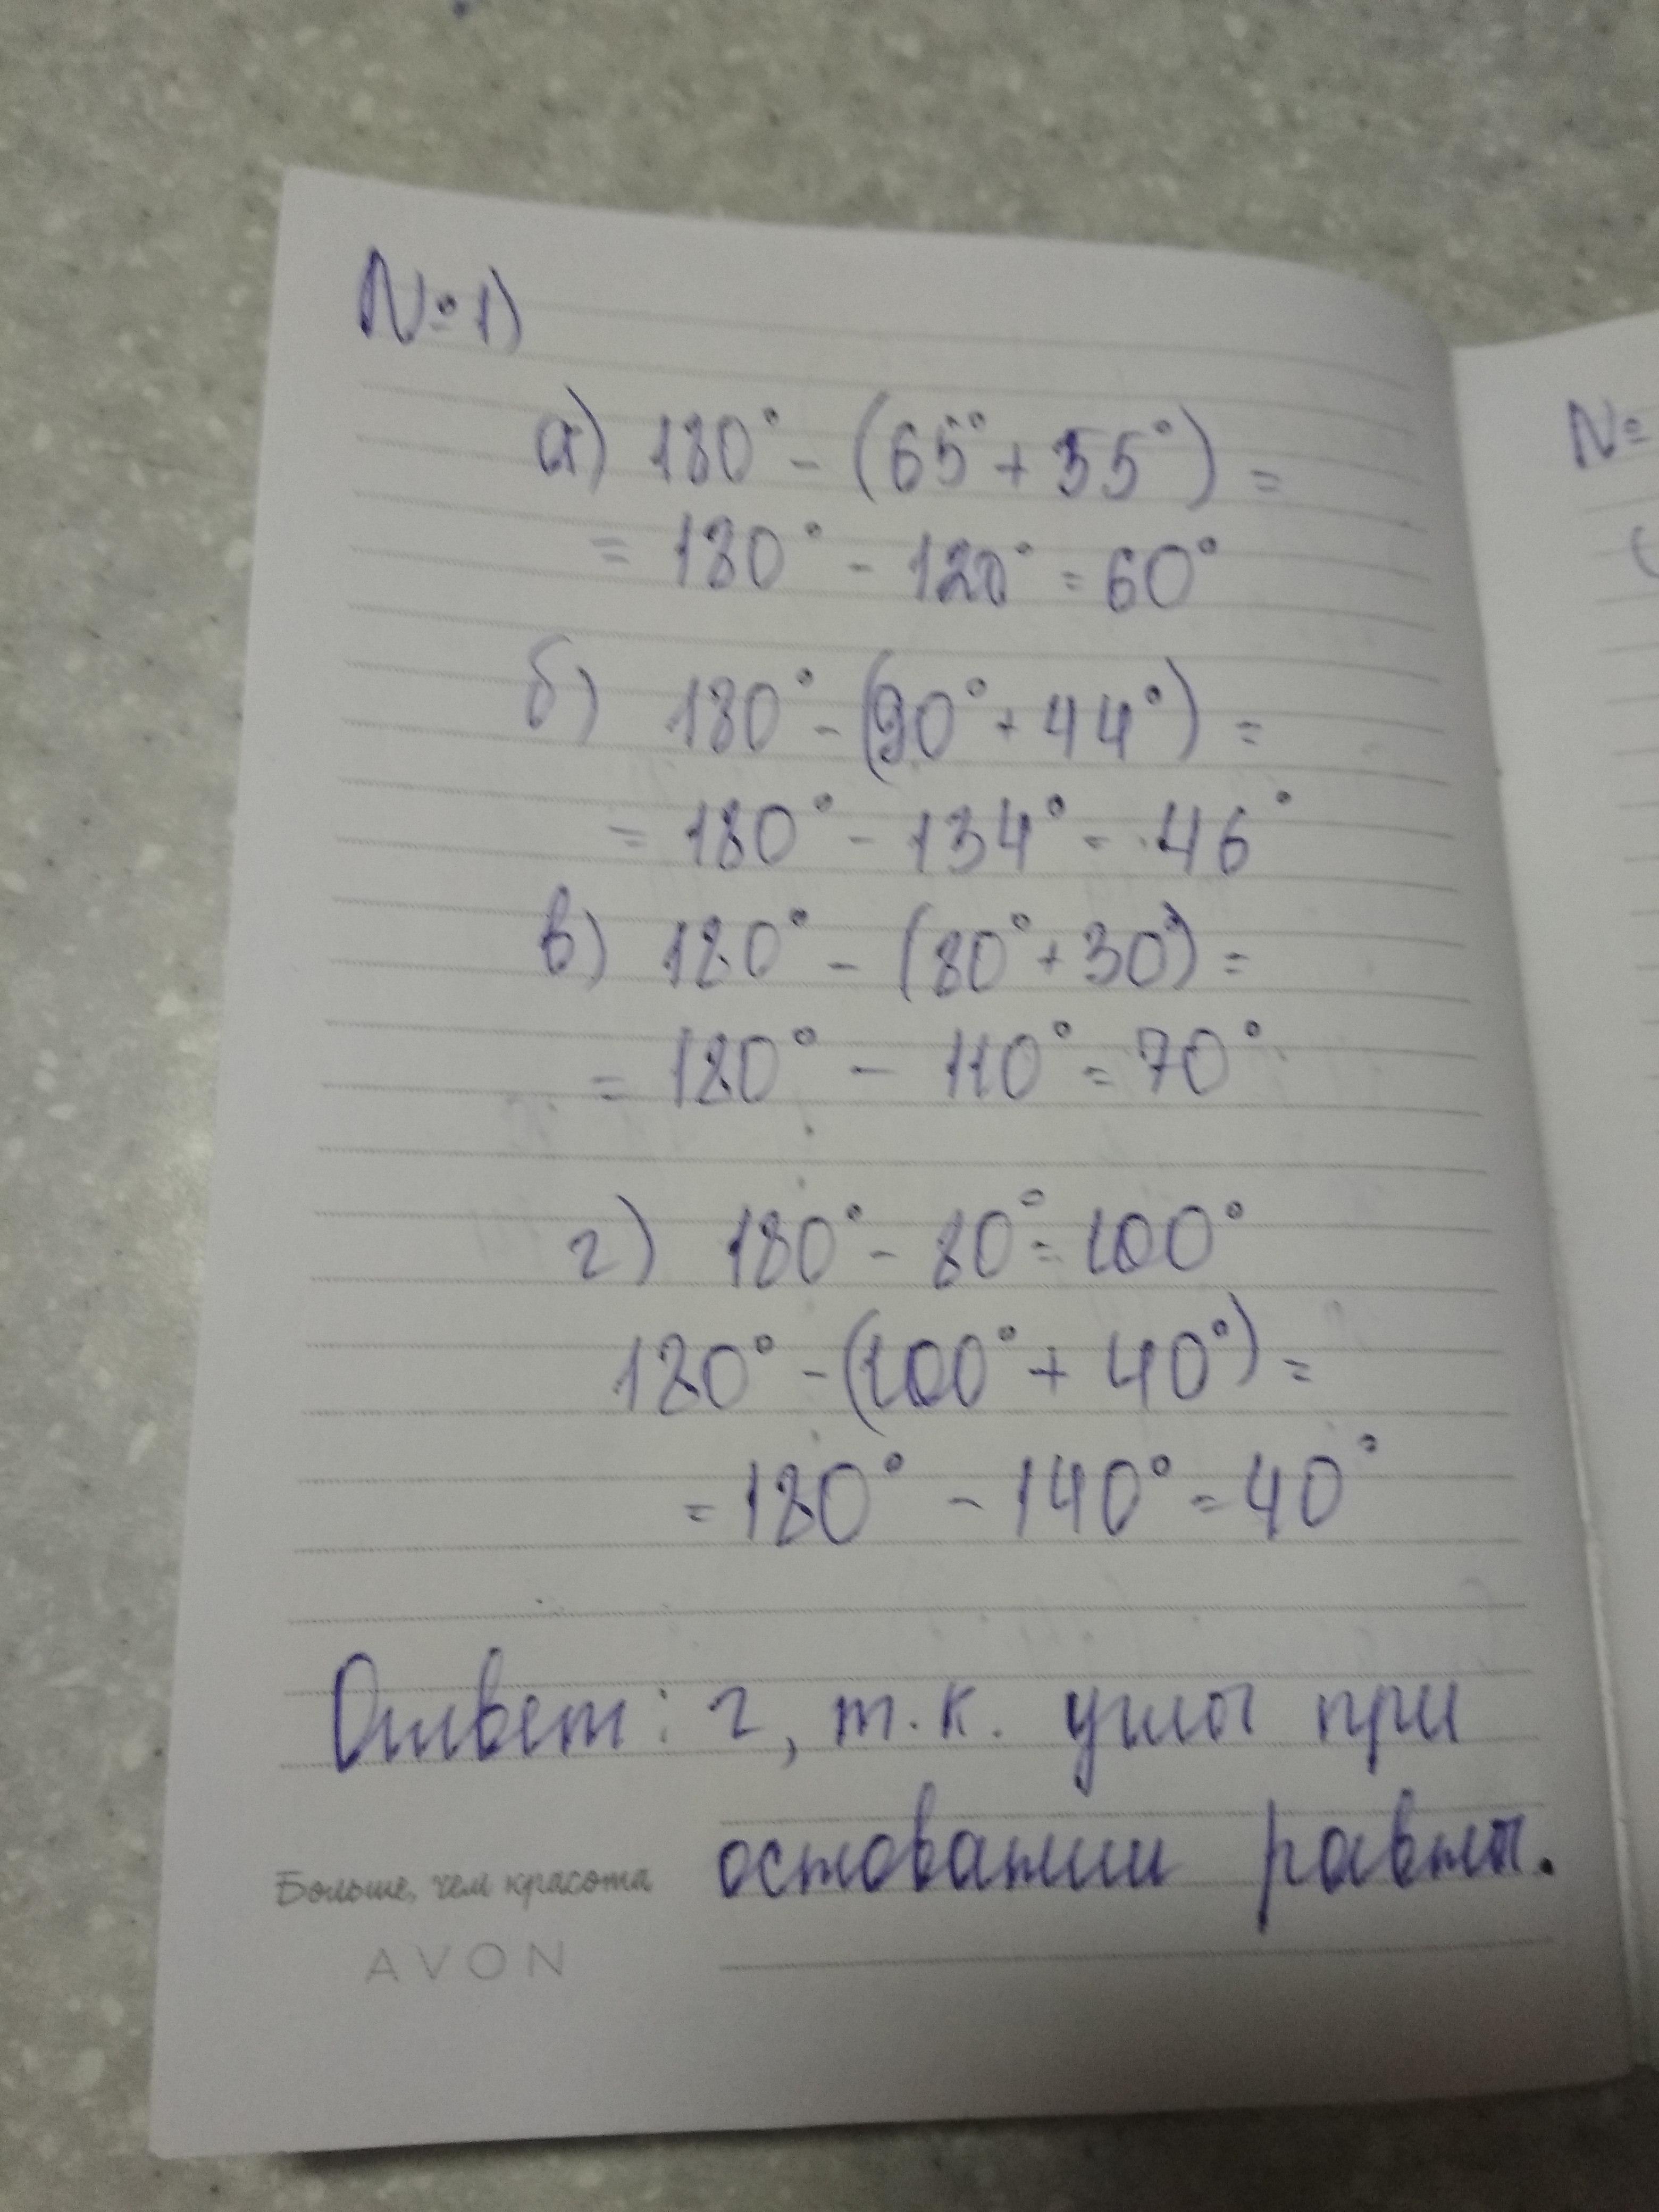 №1)
а) 180° - (65° + 55°) =
= 180° - 120° = 60°
б) 180° - (90° + 44°) =
= 180° - 134° = 46°
в) 180° - (80° + 30°) =
= 180° - 110° = 70°
г) 180° - 80° = 100°
180° - (100° + 40°) =
= 180° - 140° = 40°
Ответ: г, т.к. углы при
основании равны.
Больше, чем красота
AVON
№